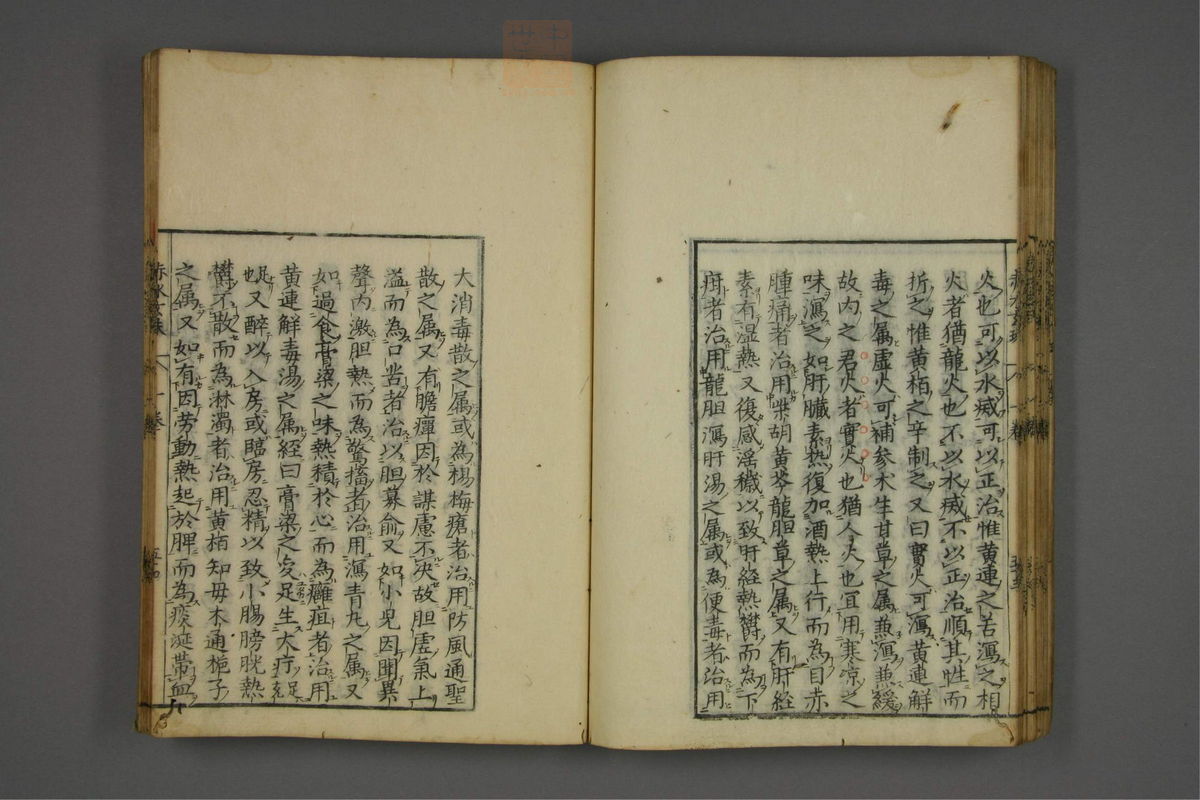 火也可以水滅可以正治惟黄連之苦瀉之相
火者猶龍火也不以水滅不以正治順其性而
折之惟黄栢之辛制之又曰實火可瀉黄連解
毒之属虚火可補參朮生甘草之属兼瀉兼緩
故内之君火者實火也猶人火也宜用寒凉之
味瀉之如肝臓素熱復加酒熱上行而為目赤
腫痛者治用柴胡黄芩龍胆草之属又有肝経
素有湿熱又復感淫穢以致肝経熱欝而為下
疳者治用龍胆瀉肝湯之属或為便毒者治用
大消毒散之属或為楊梅瘡者治用防風通聖
散之属又有膽癉因於謀慮不决故胆虚氣上
溢而為口苦者治以胆募俞又如小児因聞異
聲内激胆熱而為驚搐者治用瀉青丸之属又
如過食膏粱之味熱積於心而為癰疽者治用
黄連解毒湯之属経曰膏粱之変足生大疔足
又醉以入房或臨房忍精以致小腸膀胱熱
欝不散而為淋濁者治用黄栢知母木通梔子
之属又如有因労動熱起於脾而為痰涎帯血
赤水玄珠 一巻 五十四